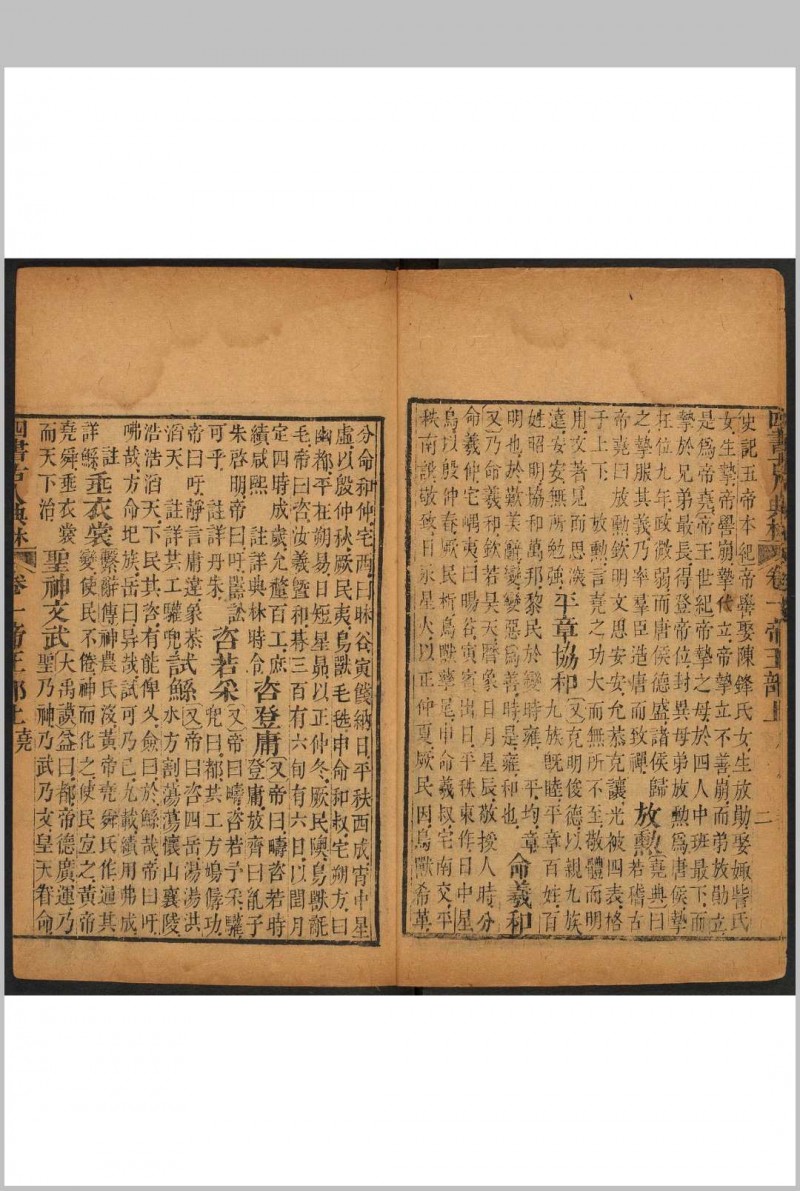 史記五帝本紀帝嚳娶陳鋒氏女生放勛娶娵訾氏
女生摯帝嚳崩摯代立帝摯立不善崩而弟放勛立
是爲帝堯帝王世紀帝摯之母於四人中班最下而
摯於兄弟最長得登帝位封異母弟放勲爲唐侯摯
在位九年政微弱而唐侯德盛諸侯歸
之摯服其義乃率羣臣造唐而致禪 放勲堯典曰若稽古
帝堯曰放勲欽明文思安安允恭克讓光被四表格
于上下 放勲言堯之功大而無所不至敬體而明
用文著見而思深
遠安安無所勉強 平章協和又克明俊德以親九族
九族既睦平章百姓百
姓昭明協和萬邦黎民於變時雍 平均章
明也於歎美辭變變惡爲善時是雍和也 命羲和
又乃命羲和欽若昊天曆象日月星辰敬授人時分
命羲仲宅嵎夷曰暘谷寅賓出日平秩東作日中星
鳥以殷仲春厥民析鳥獸孳尾申命羲叔宅南交平
秩南訛敬致日永星火以正仲夏厥民因鳥獸希革
四書古人典林 卷一帝王部上 二
分命和仲宅西曰昧谷寅餞納日平秩西成宵中星
虛以殷仲秋厥民夷鳥獸毛毨申命和叔宅朔方曰
幽都平在朔易日短星昴以正仲冬厥民隩鳥獸氄
毛帝曰咨汝羲暨和朞三百有六旬有六日以閏月
定四時成歲允釐百工庶
績咸熙 註詳典林時令 咨登庸又帝曰疇咨若時
登庸放齊曰胤子
朱啓明帝曰吁嚚訟
可乎 註詳丹朱 咨若采又帝曰疇咨若予采驩
兜曰都共工方鳩僝功
帝曰吁靜言庸違象恭
滔天 註詳共工驩兜 試鯀又帝曰咨四岳湯湯洪
水方割蕩蕩懷山襄陵
浩浩滔天下民其咨有能俾乂僉曰於鯀哉帝曰吁
咈哉方命圮族岳曰异哉試可乃已九載績用弗成
註
詳鯀 垂衣裳繫辭傳神農氏沒黃帝堯舜氏作通其
變使民不倦神而化之使民宜之黃帝
堯舜垂衣裳
而天下治 聖神文武大禹謨益曰都帝德廣運乃
聖乃神乃武乃文皇天眷命
四書古人典林 卷一帝王部上堯